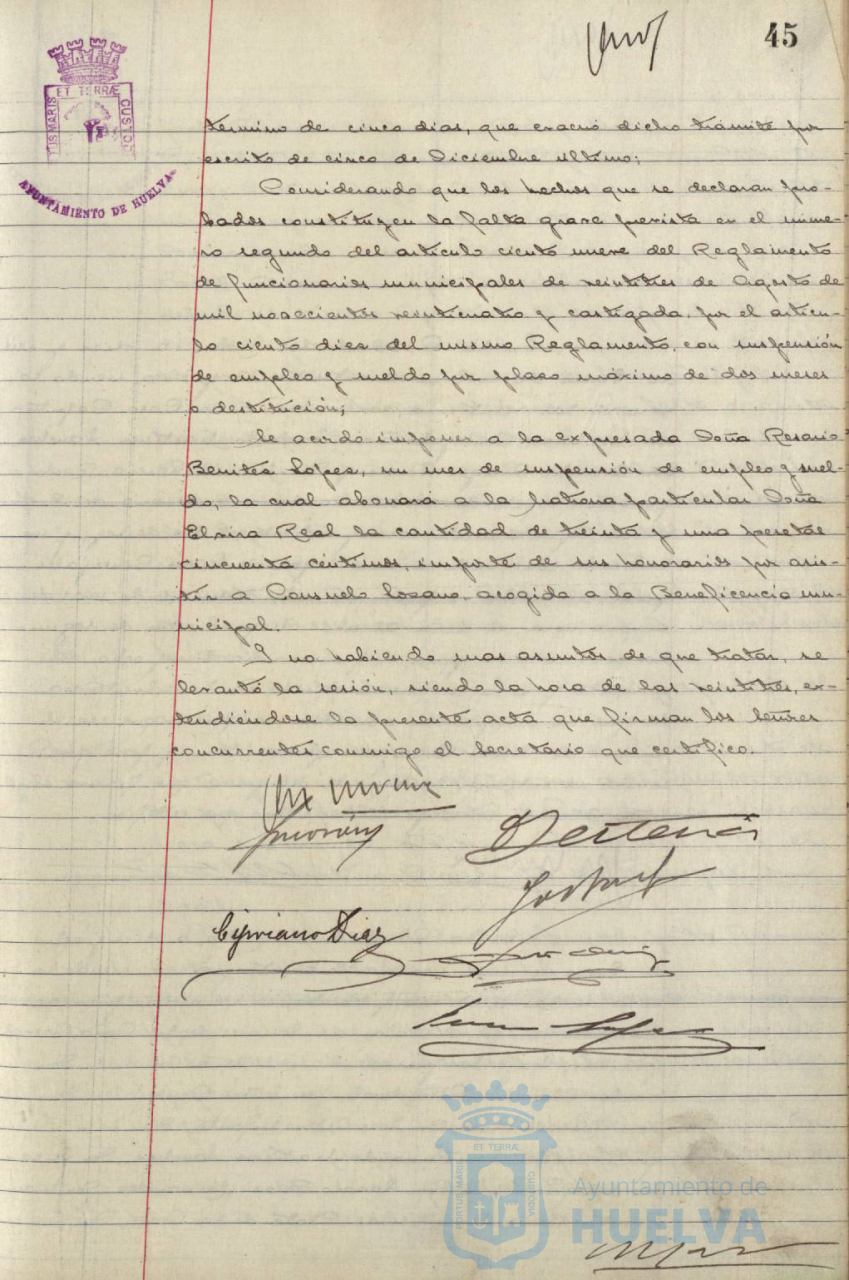 45
ET TERRÆ
PORTUS MARIS
CUSTODIA
AYUNTAMIENTO DE HUELVA
término de cinco dias, que evacuó dicho trámite por
escrito de cinco de Diciembre último;
Considerando que los hechos que se declaran pro-
bados constituyen la falta grave prevista en el núme-
ro segundo del artículo ciento nueve del Reglamento
de funcionarios municipales de veintitres de Agosto de
mil novecientos veinticuatro y castigada, por el artícu-
lo ciento diez del mismo Reglamento, con suspensión
de empleo y sueldo por plazo máximo de dos meses
o destitución;
Se acordó imponer a la expresada Doña Rosario
Benitez Lopez, un mes de suspensión de empleo y suel-
do, la cual abonará a la matrona particular Doña
Elvira Real la cantidad de treinta y una pesetas
cincuenta céntimos, importe de sus honorarios por asis-
tir a Consuelo Lozano, acogida a la Beneficencia mu-
nicipal.
Y no habiendo mas asuntos de que tratar, se
levantó la sesión, siendo la hora de las veintitres, ex-
tendiéndose la presente acta que firman los Señores
concurrentes conmigo el Secretario que certifico.
Cipriano Diaz
ET TERRÆ
PORTUS MARIS
CUSTODIA
Ayuntamiento de
HUELVA